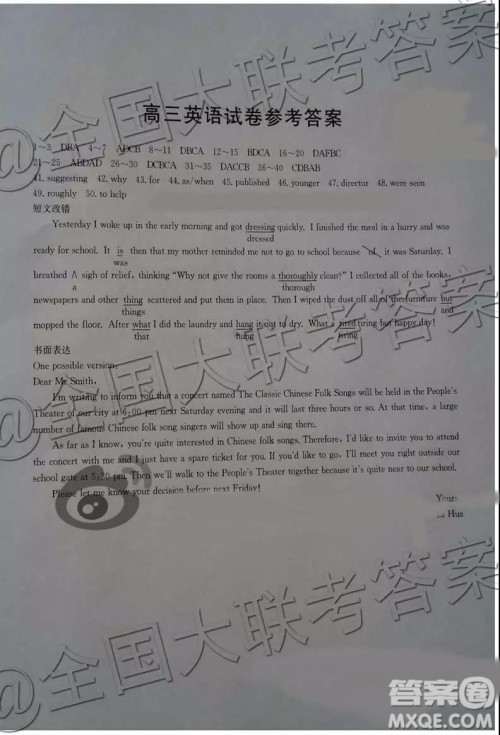 高三英语试卷参考答案
1~3 DBA 4~7 ADCB 8~11 DBCA 12~15 BDCA 16~20 DAFBC
21~25 ABDAD 26~30 DCBCA 31~35 DACCB 36~40 CDBAB
41. suggesting 42. why 43. for 44. as/when 45. published 46. younger 47. director 48. were seen
49. roughly 50. to help
短文改错
Yesterday I woke up in the early morning and got dressing quickly. I finished the meal in a hurry and was
dressed
ready for school. It is then that my mother reminded me not to go to school because of it was Saturday. I
was
breathed ∧ sigh of relief, thinking "Why not give the rooms a thoroughly clean?" I collected all of the books,
a thorough
newspapers and other thing scattered and put them in place. Then I wiped the dust off all of the furniture but
things and
mopped the floor. After what I did the laundry and hang it out to dry. What a tired tiring but happy day!
that hung tiring
书面表达
One possible version:
Dear Mr Smith,
I'm writing to inform you that a concert named The Classic Chinese Folk Songs will be held in the People's
Theater of our city at 6:00 pm next Saturday evening and it will last three hours or so. At that time, a large
number of famous Chinese folk song singers will show up and sing there.
As far as I know, you're quite interested in Chinese folk songs. Therefore, I'd like to invite you to attend
the concert with me and I just have a spare ticket for you. If you'd like to go, I'll meet you right outside our
school gate at 5:20 pm. Then we'll walk to the People's Theater together because it's quite near to our school.
Please let me know your decision before next Friday!
Your
Hua
@全国大联考答案
@全国大联考答案
@全国大联考答案
答案圈
MXQE.COM